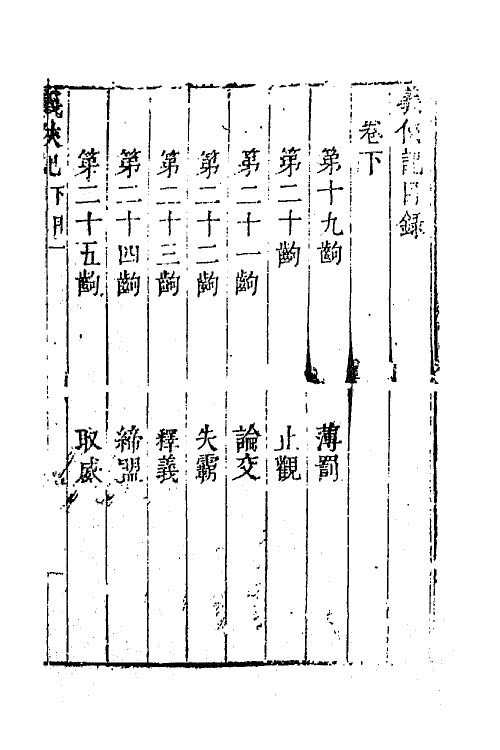 義俠記目録
卷下
第十九齣 薄罰
第二十齣 止觀
第二十一齣 論交
第二十二齣 失霸
第二十三齣 釋義
第二十四齣 締盟
第二十五齣 取威
義俠記下目一